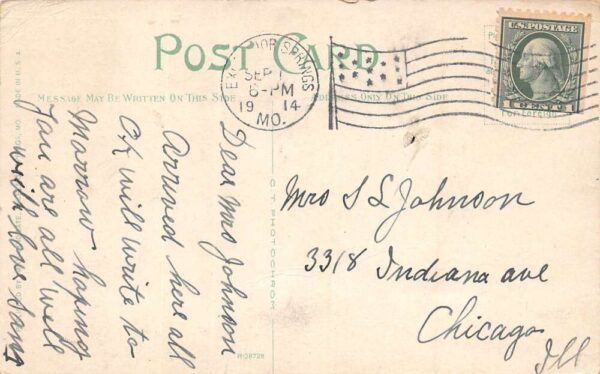 POST CARD
MESSAGE MAY BE WRITTEN ON THIS SIDE
ADDRESS ONLY ON THIS SIDE
SPRINGS
SEP
6-PM
1914
MO.
U.S. POSTAGE
1 CENT 1
Dear Mrs Johnson
Arrived here all
O.K will write to
Morrow hoping
You are all well
with love
Mrs S L Johnson
3318 Indiana ave
Chicago
Ill
C.T. PHOTOCHROM
MADE IN U.S.A.